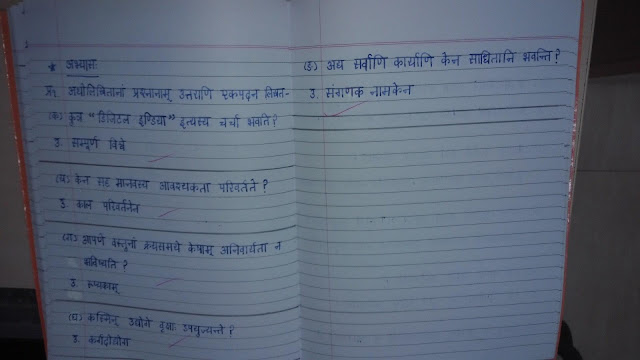 * अभ्यासः
प्र1 अधोलिखितानां प्रश्नानाम् उत्तराणि एकपदेन लिखत-
(क) कुत्र "डिजिटल इण्डिया" इत्यस्य चर्चा भवति?
उ. सम्पूर्ण विश्वे
(ख) केन सह मानवस्य आवश्यकता परिवर्तते?
उ. काल परिवर्तनेन
(ग) आपणे वस्तूनां क्रयसमये केषाम् अनिवार्यता न
भविष्यति?
उ. रूप्यकाणाम्
(घ) कस्मिन् उद्योगे वृक्षाः उपयुज्यन्ते?
उ. कर्गदोद्योगे
(ङ) अद्य सर्वाणि कार्याणि केन साधितानि भवन्ति?
उ. संगणक नामकेन